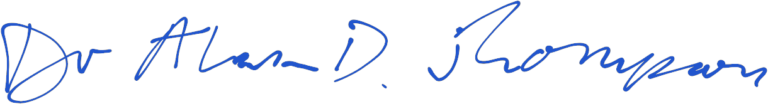 Dr Alan D. Thompson